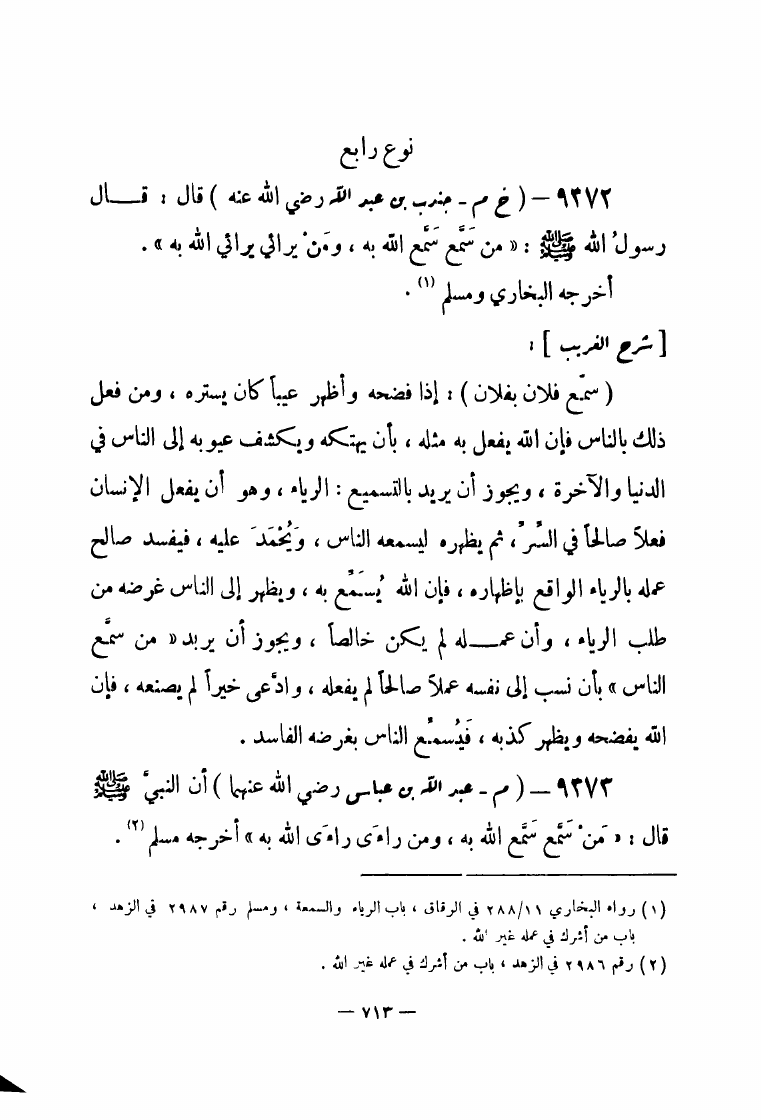 نوع رابع
٩٣٧٢ — ( خ م - جندب بن عبد الله رضي الله عنه ) قال : قــال
رسولُ الله ﷺ : « من سَمَّع سَمَّع الله به ، ومَنْ يرائي يرائي الله به » .
أخرجه البخاري ومسلم (١) .
[ شرح الغريب ] :
( سمّع فلان بفلان ) : إذا فضحه وأظهر عيباً كان يستره ، ومن فعل
ذلك بالناس فإن الله يفعل به مثله ، بأن يهتكه ويكشف عيوبه إلى الناس في
الدنيا والآخرة ، ويجوز أن يريد بالتسميع : الرياء ، وهو أن يفعل الإنسان
فعلاً صالحاً في السِّرِّ ، ثم يظهره ليسمعه الناس ، وَيُحْمَدَ عليه ، فيفسد صالح
عمله بالرياء الواقع بإظهاره ، فإن الله يُسَمِّع به ، ويظهر إلى الناس غرضه من
طلب الرياء ، وأن عمــله لم يكن خالصاً ، ويجوز أن يريد « من سمَّع
الناس » بأن نسب إلى نفسه عملاً صالحاً لم يفعله ، وادَّعى خيراً لم يصنعه ، فإن
الله يفضحه ويظهر كذبه ، فَيُسمِّع الناس بغرضه الفاسد .
٩٣٧٣ — ( م - عبد الله بن عباس رضي الله عنهما ) أن النبيَّ ﷺ
قال : « مَنْ سَمَّع سَمَّع الله به ، ومن راءَى راءَى الله به » أخرجه مسلم (٢) .
(١) رواه البخاري ٢٨٨/١١ في الرقاق ، باب الرياء والسمعة ، ومسلم رقم ٢٩٨٧ في الزهد ،
باب من أشرك في عمله غير الله .
(٢) رقم ٢٩٨٦ في الزهد ، باب من أشرك في عمله غير الله .
— ٧١٣ —